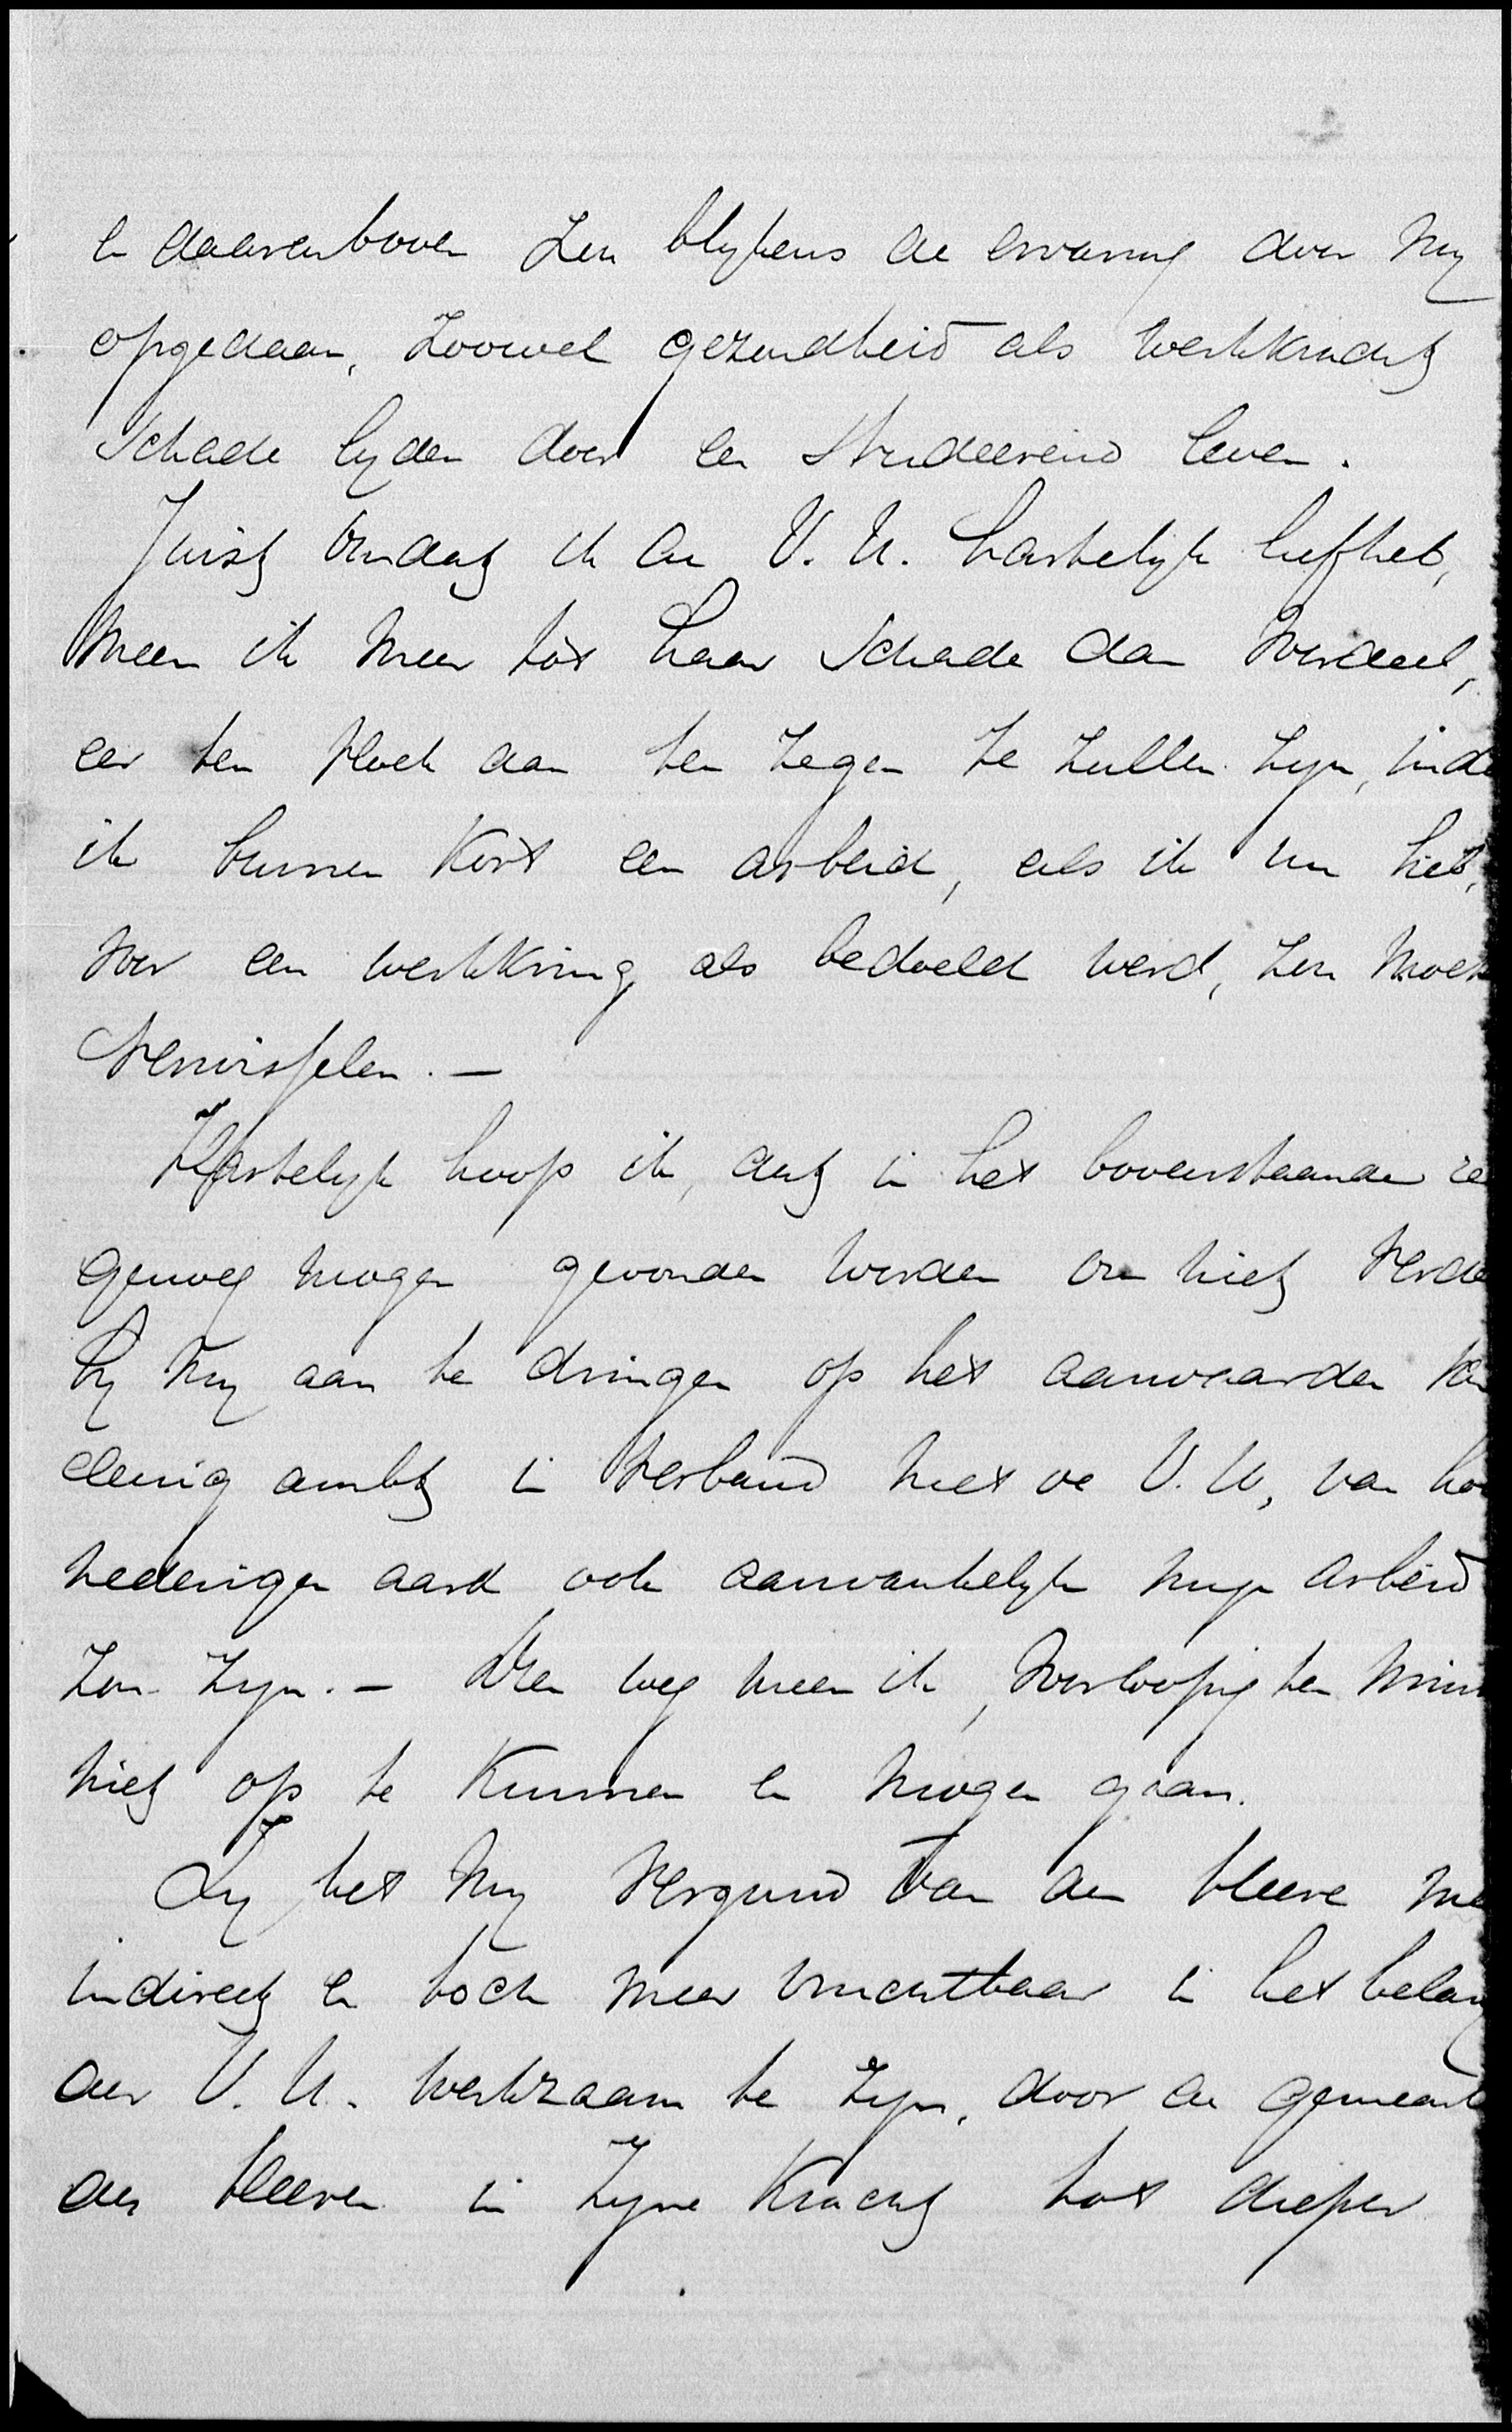 en daarenboven zou blijkens de ervaring door mij
opgedaan, zoowel gezondheid als werkkracht
schade lijden door een studeerend leven.
Juist omdat ik de V. U. hartelijk liefheb,
meen ik meer tot haar schade dan voordeel,
eer ten vloek dan ten zegen te zullen zijn, inde
ik binnen kort een arbeid, als ik nu heb,
voor een werkkring als bedoeld werd, zou moet
verwisselen. —
Hartelijk hoop ik, dat in het bovenstaande re
genoeg mogen gevonden worden om niet verde
bij mij aan te dringen op het aanvaarden van
eenig ambt in verband met de V. U., van hoe
nederigen aard ook aanvankelijk mijn arbeid
zou zijn. — Dien weg meen ik, voorloopig ten mins
niet op te kunnen en mogen gaan.
Zij het mij vergund van den Heere me
indirect en toch meer vruchtbaar in het belang
der V. U. werkzaam te zijn, door de gemeent
des Heeren in Zijne kracht tot dieper